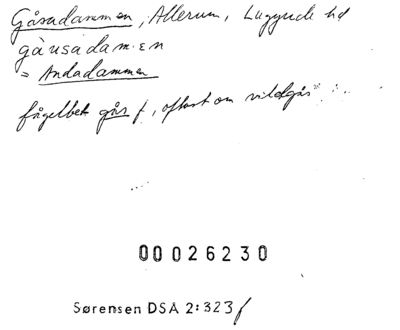 Gåsadammen, Allerum, Luggude hd
gàusádam·en
= Andadammen
fågelbet gås f., oftast om vildgås
00026230
Sørensen DSA 2:323f